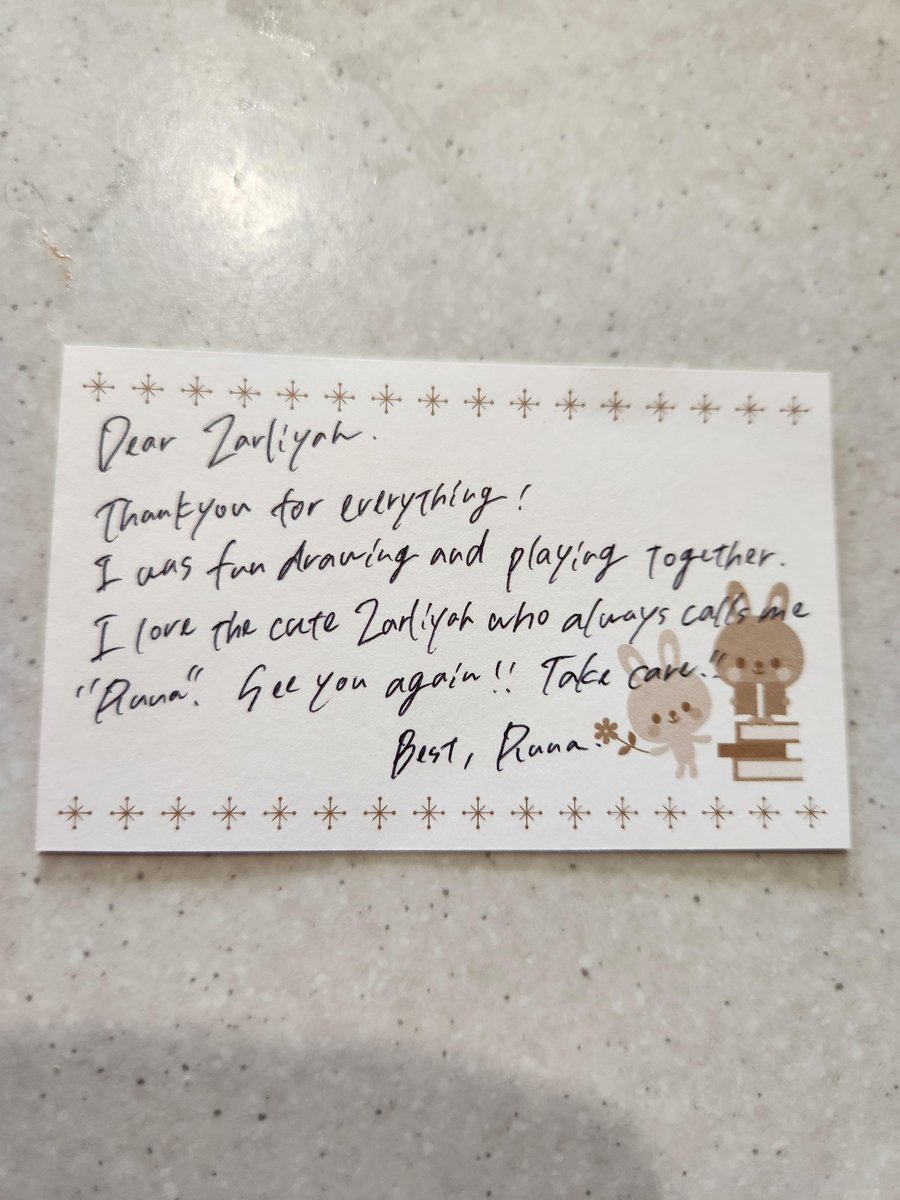 Dear Zarliyah.
Thankyou for everything!
I was fun drawing and playing together.
I love the cute Zarliyah who always calls me
"Runa". See you again!! Take care."
Best, Runa.